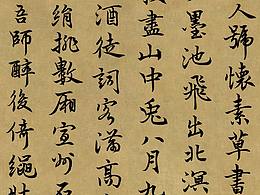 人號懷素草書
墨池飛出北溟
盡山中兔八月九
酒徒詞客滿高
絹排數廂宣州
吾師醉後倚繩